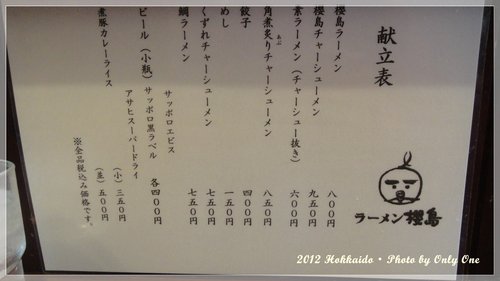 献立表
櫻島ラーメン 八〇〇円
櫻島チャーシューメン 九五〇円
素ラーメン（チャーシュー抜き） 六〇〇円
角煮炙りチャーシューメン 八五〇円
あぶ
餃子 四〇〇円
めし 一五〇円
くずれチャーシューメン 七五〇円
鯛ラーメン 七五〇円
サッポロエビス
ビール（小瓶）サッポロ黒ラベル 各四〇〇円
アサヒスーパードライ
煮豚カレーライス （小）三五〇円
（並）五〇〇円
※全品税込み価格です。
ラーメン櫻島
2012 Hokkaido・Photo by Only One